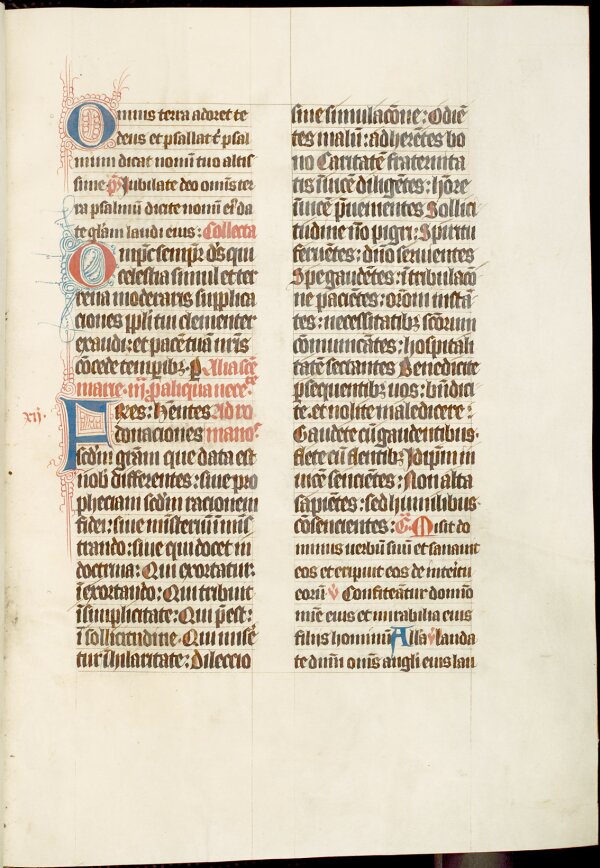 Omnis terra adoret te
deus et psallat t̄ psal
mum dicat nomini tuo altis
sime p̄s Jubilate deo om̄is ter
ra psalmū dicite nomī ei᷒ da
te glām laudi eius: Collecta
Omp̄c semp̄r ds̄ qui
celestia simul et ter
rena moderaris supplica
ciones ppl̄i tui clementer
exaudi: et pacē tuā nr̄is
cōcede temporibꝫ· p̄
marie· in
xij·
Fr̄es: Hēntes Ad ro
donaciones manos
scdm̄ grām que data est
nob̄ differentes: siue pro
pheciam scdm̄ racionem
fidei: siue misteriū in mis
trando: siue qui docet in
doctrina: Qui exortatur·
ī exortando: Qui tribuit
ī simplicitate: Qui p̄est:
ī sollicitudine· Qui mise
tur ī hilaritate: Dileccio
sine simulacōne: Odiē
tes malū: adherētes bo
no Caritatē fraternita
tis īuicē diligētes: hōre
īuicē p̄uenientes Sollici
tudine nō pigri: Spiritu
feruētes: dn̄o seruientes
Spe gaudētes: ī tribulacō
ne paciētes: orōni instā
tes: necessitatibꝫ scōrum
cōmunicātes: hospitali
tatē sectantes Benedicite
psequentibꝫ uos: bn̄dici
te· et nolite maledicere:
Gaudete cū gaudentibus·
flete cū flentibꝫ Idip̄m in
uicē sencietes: Non alta
sapiētes: sed humilibus·
cōsencientes: G̅ Misit do
minus uerbū suū et sanauit
eos et eripuit eos de interitu
eorū V Confiteātur domino
mīe eius et mirabilia eius
filijs hominū Alla V lauda
te dnm̄ om̄s angli eius lau